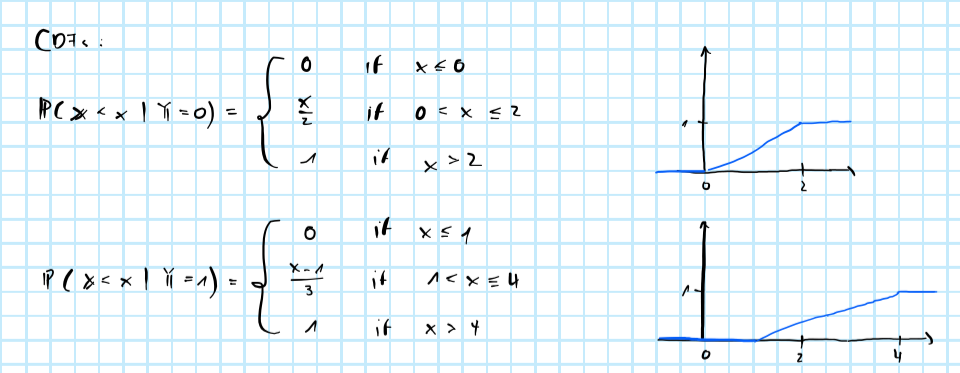 CDFs:
P(X < x | Y = 0) = { 0 if x ≤ 0
x/2 if 0 < x ≤ 2
1 if x > 2
1
0 2
P(X < x | Y = 1) = { 0 if x ≤ 1
x-1/3 if 1 < x ≤ 4
1 if x > 4
1
0 2 4